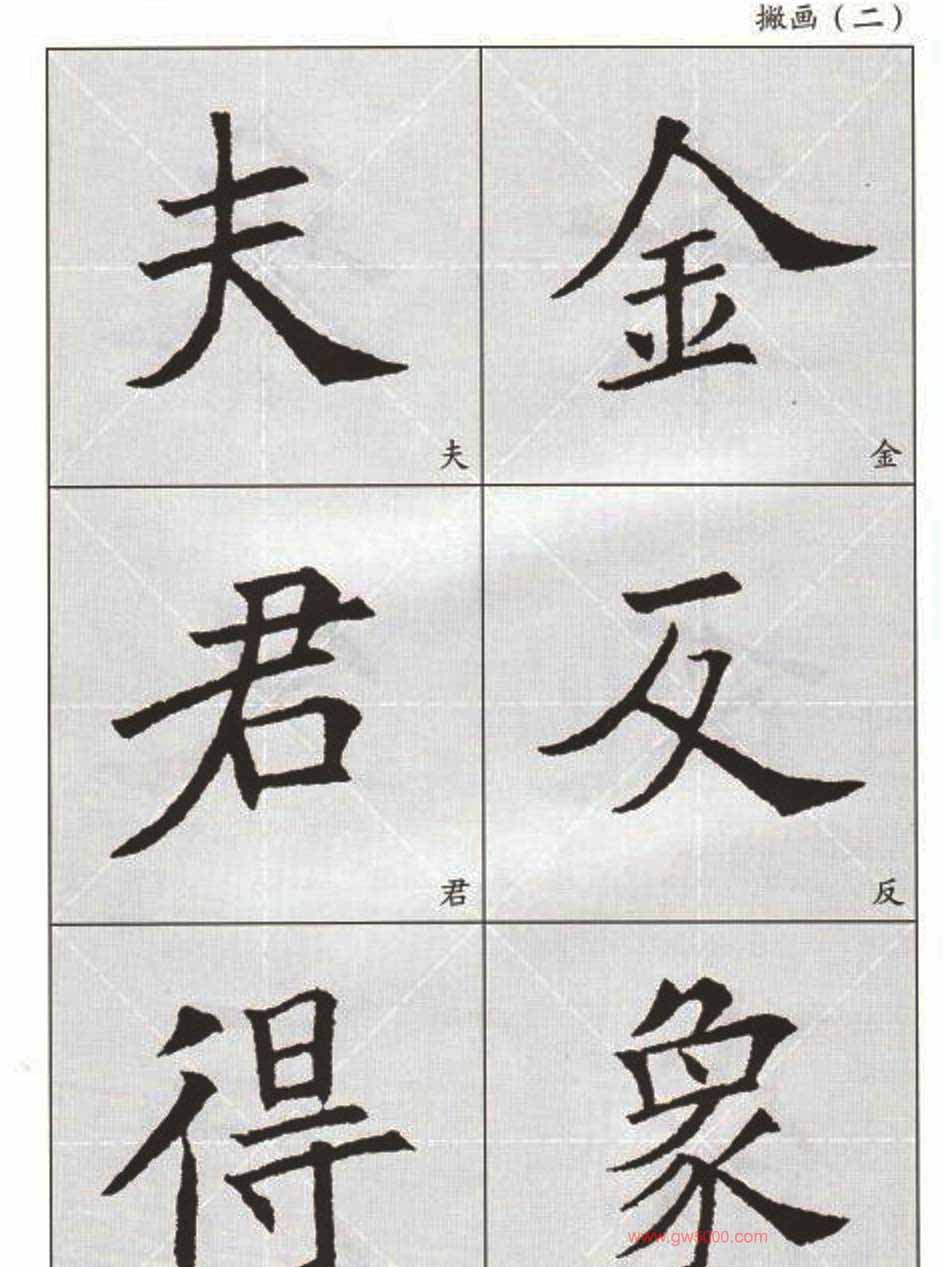 撇画（二）
夫 金
夫 金
君 反
君 反
得 象
www.gw5000.com